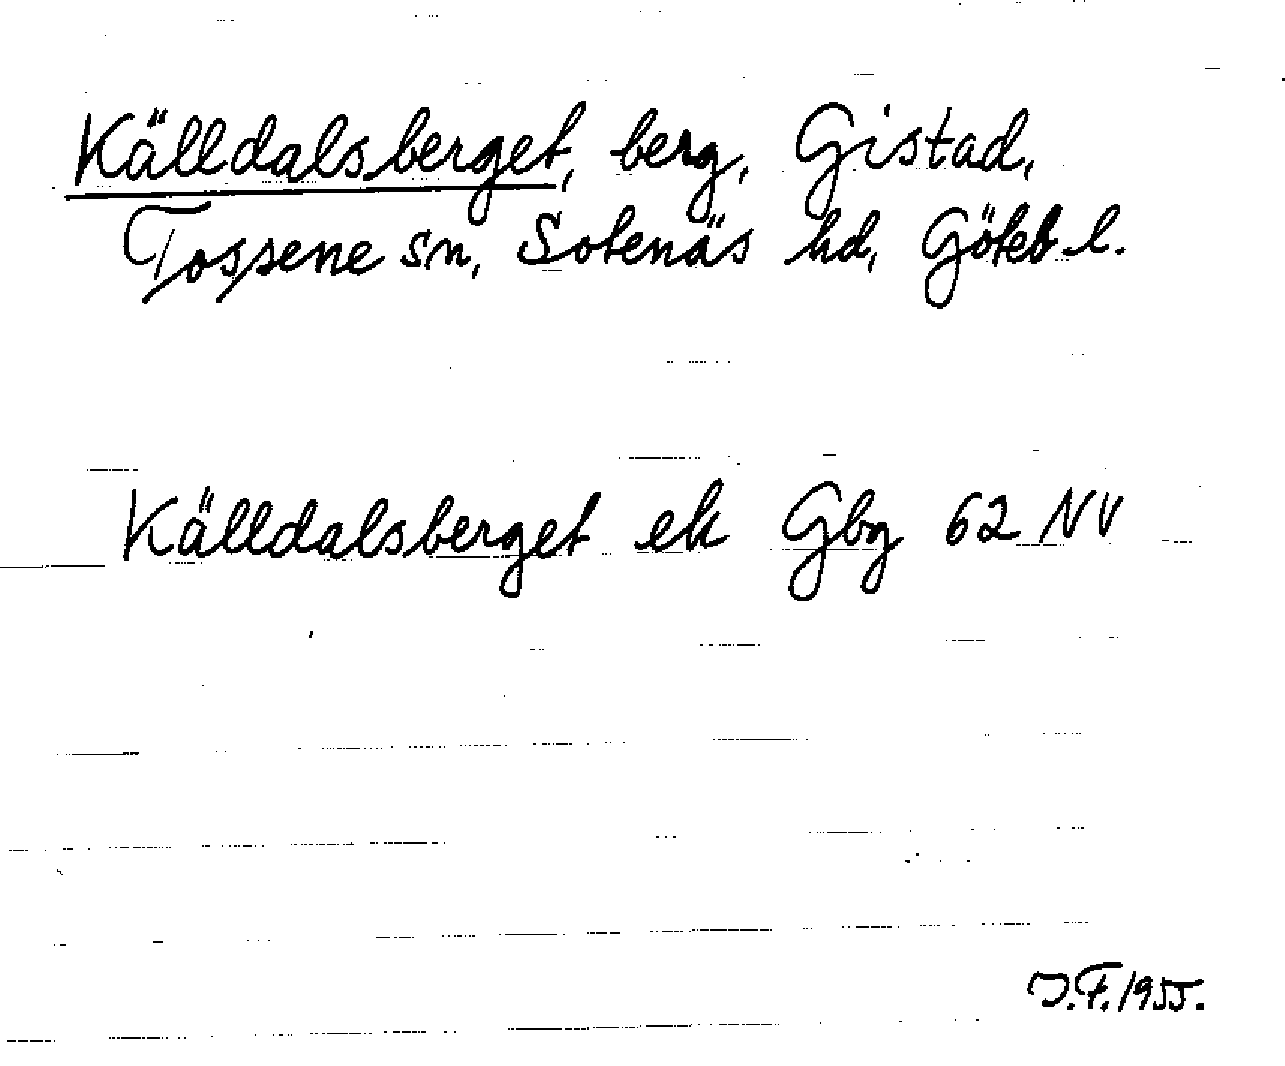 Källdalsberget, berg, Gistad,
Tossene sn, Sotenäs hd, Göteb l.
Källdalsberget ek Gbg 62 NV
J.F. 1955.